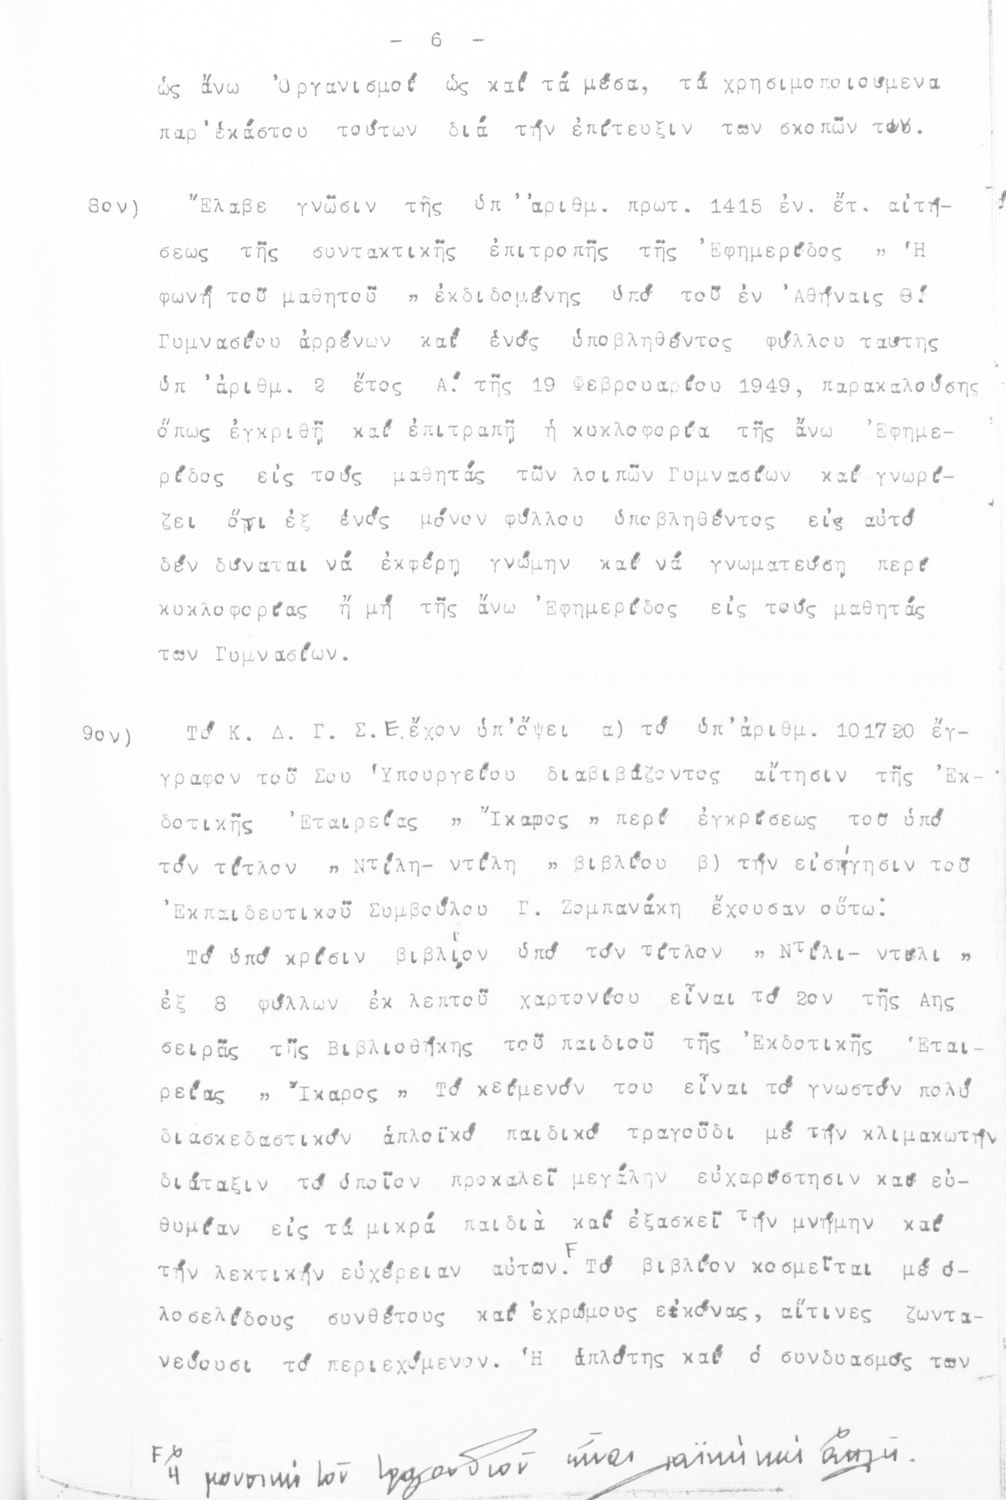 - 6 -
ὡς ἄνω Ὀργανισμοί ὡς καί τά μέσα, τά χρησιμοποιούμενα
παρ' ἑκάστου τούτων διά τήν ἐπίτευξιν των σκοπῶν των.
8ον) Ἔλαβε γνῶσιν τῆς ὑπ' ἀριθμ. πρωτ. 1415 ἐν. ἔτ. αἰτή-
σεως τῆς συντακτικῆς ἐπιτροπῆς τῆς Ἐφημερίδος " Ἡ
φωνή τοῦ μαθητοῦ " ἐκδιδομένης ὑπό τοῦ ἐν Ἀθήναις Θ!
Γυμνασίου ἀρρένων καί ἑνός ὑποβληθέντος φύλλου ταύτης
ὑπ' ἀριθμ. 2 ἔτος Α! τῆς 19 Φεβρουαρίου 1949, παρακαλούσης
ὅπως ἐγκριθῇ καί ἐπιτραπῇ ἡ κυκλοφορία τῆς ἄνω Ἐφημε-
ρίδος εἰς τούς μαθητάς τῶν λοιπῶν Γυμνασίων καί γνωρί-
ζει ὅτι ἐξ ἑνός μόνον φύλλου ὑποβληθέντος εἰς αὐτό
δέν δύναται νά ἐκφέρῃ γνώμην καί νά γνωματεύσῃ περί
κυκλοφορίας ἤ μή τῆς ἄνω Ἐφημερίδος εἰς τούς μαθητάς
των Γυμνασίων.
9ον) Τό Κ. Δ. Γ. Σ. Ε. ἔχον ὑπ' ὄψει α) τό ὑπ' ἀριθμ. 101720 ἔγ-
γραφον τοῦ Σου Ὑπουργείου διαβιβάζοντος αἴτησιν τῆς Ἐκ-
δοτικῆς Ἑταιρείας " Ἴκαρος " περί ἐγκρίσεως του ὑπό
τόν τίτλον " Ντίλη- ντίλη " βιβλίου β) τήν εἰσήγησιν τοῦ
Ἐκπαιδευτικοῦ Συμβούλου Γ. Ζομπανάκη ἔχουσαν οὕτω:
Τό ὑπό κρίσιν βιβλίον ὑπό τόν τίτλον " Ντίλι- ντιλι "
ἐξ 8 φύλλων ἐκ λεπτοῦ χαρτονίου εἶναι τό 2ον τῆς Αης
σειρᾶς τῆς Βιβλιοθήκης τοῦ παιδιοῦ τῆς Ἐκδοτικῆς Ἑται-
ρείας " Ἴκαρος " Τό κείμενόν του εἶναι τό γνωστόν πολύ
διασκεδαστικόν ἁπλοϊκό παιδικό τραγοῦδι μέ τήν κλιμακωτήν
διάταξιν τό ὁποῖον προκαλεῖ μεγάλην εὐχαρίστησιν καί εὐ-
θυμίαν εἰς τά μικρά παιδιὰ καί ἐξασκεῖ τήν μνήμην καί
τήν λεκτικήν εὐχέρειαν αὐτων. F Τό βιβλίον κοσμεῖται μέ ὁ-
λοσελίδους συνθέτους καί ἐχρώμους εἰκόνας, αἵτινες ζωντα-
νεύουσι τό περιεχόμενον. Ἡ ἁπλότης καί ὁ συνδυασμός των
F Ἡ μουσική τοῦ τραγουδιοῦ εἶναι καί ἁπλή.